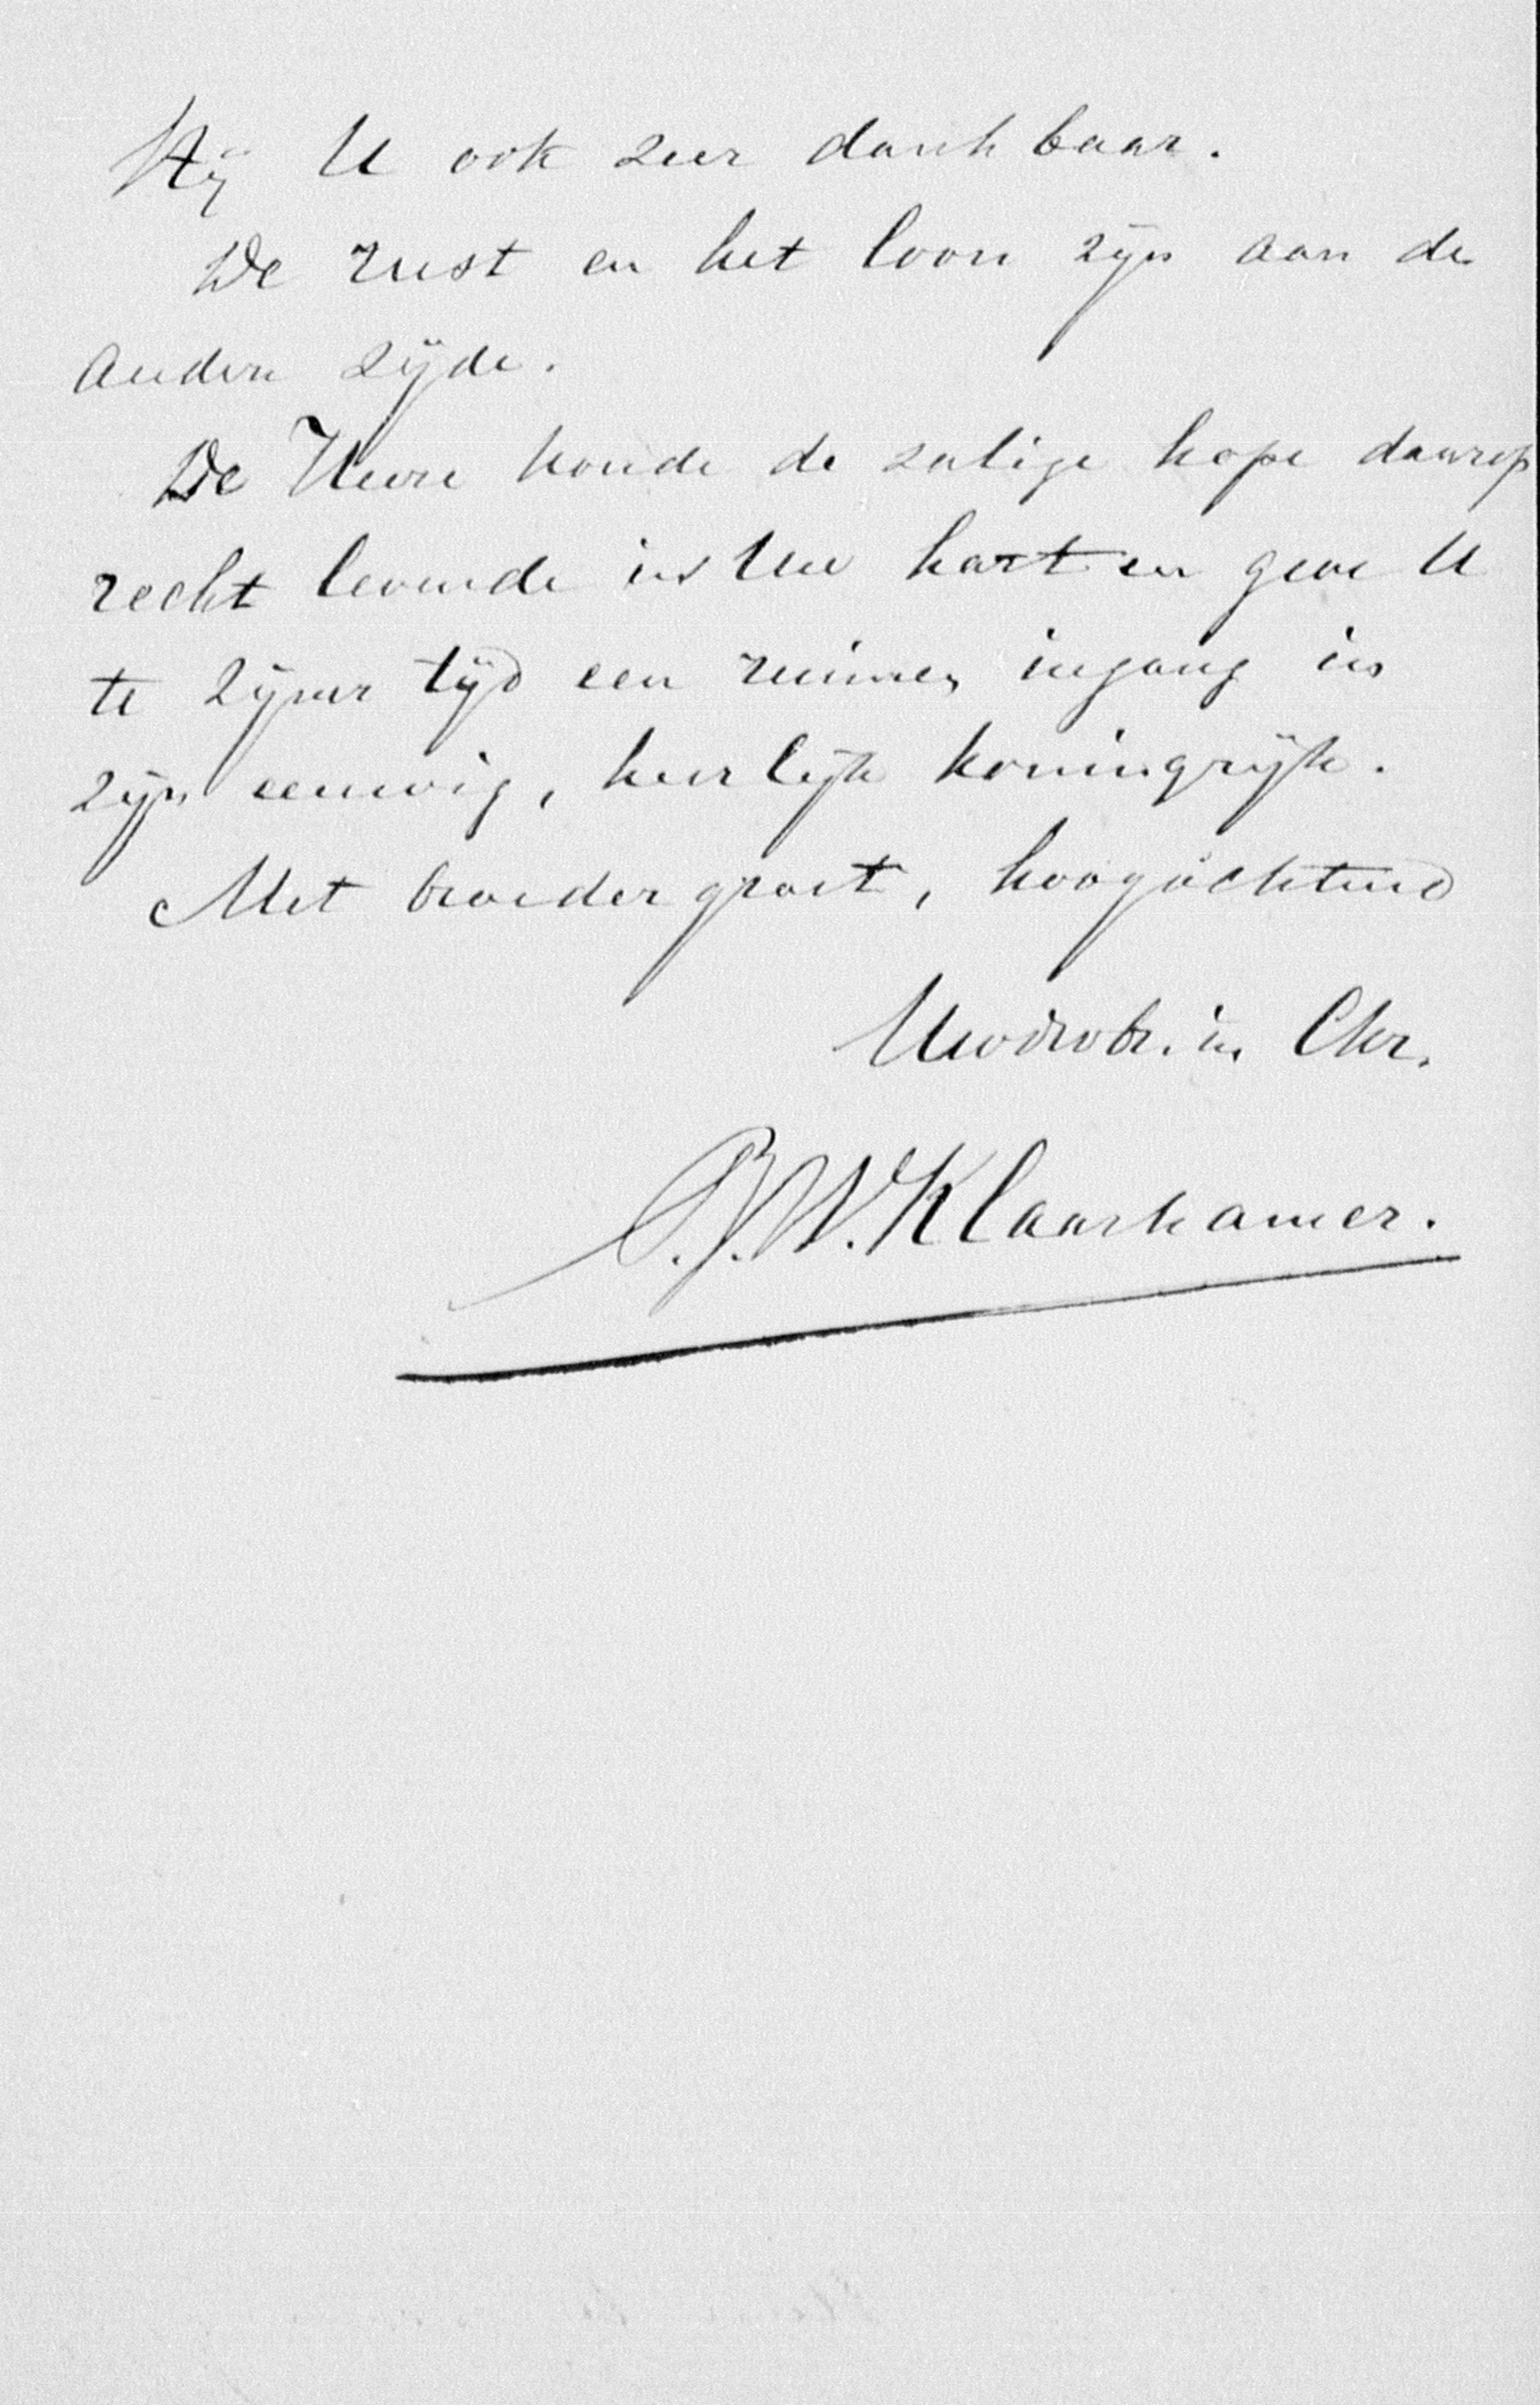 Hij U ook zeer dankbaar.
De rust en het loon zijn aan de
andere zijde.
De Heere houde de zalige hope daarop
recht levende in Uw hart en geve U
te zijner tijd een ruimen ingang in
zijn eeuwig, heerlijk koningrijk.
Met broedergroet, hoogachtend
Uwdwbr. in Chr.
P.J.W. Klaarhamer.